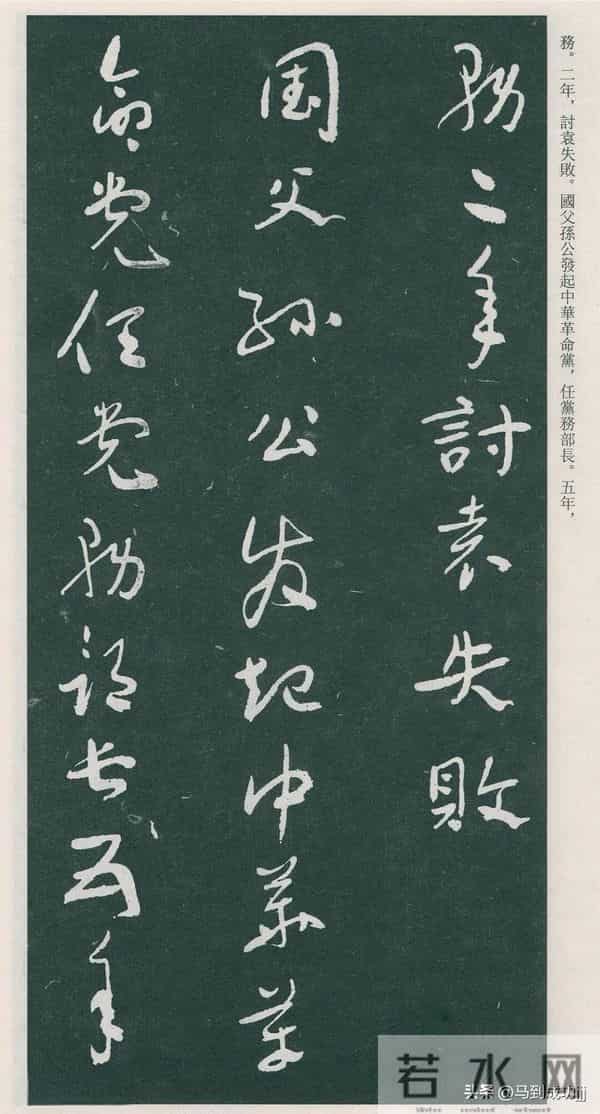 務。二年，討袁失敗。國父孫公發起中華革命黨，任黨務部長。五年，
務二年討袁失敗
國父孫公發起中華革
命黨任黨務部長五年
若水网
头条 @马到成功jj